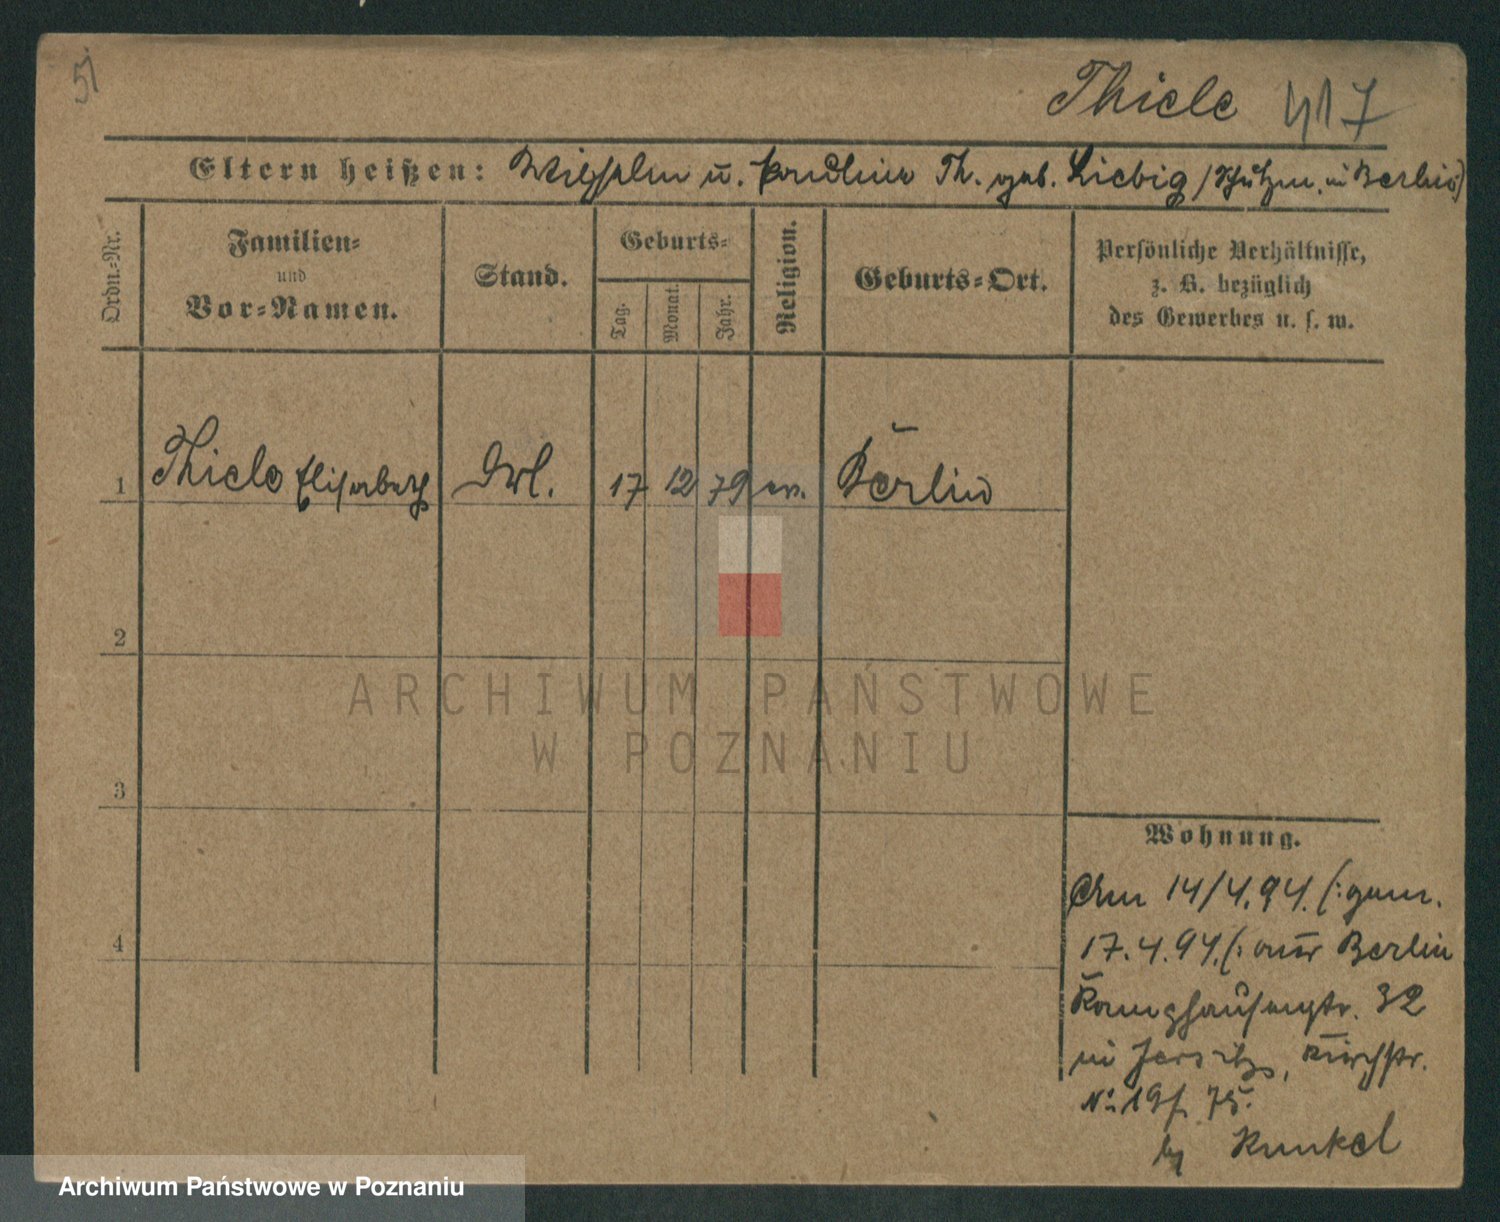 51
Thiele 417
Eltern heißen: Wilhelm u. Pauline Th. geb. Liebig / Schutzm. in Berlin
Ordn.-Nr.
Familien-
und
Vor-Namen.
Stand.
Geburts-
Tag.
Monat.
Jahr.
Religion.
Geburts-Ort.
Persönliche Verhältnisse,
z. B. bezüglich
des Gewerbes u. s. w.
1 Thiele Elisabeth 17 12 79 ev. Berlin
2
3
4
ARCHIWUM PAŃSTWOWE
W POZNANIU
Wohnung.
Am 14/4.94. (: gem.
17.4.94. (: aus Berlin
32
in Jersitz, Kirchstr.
No 19
by Kunkel
Archiwum Państwowe w Poznaniu